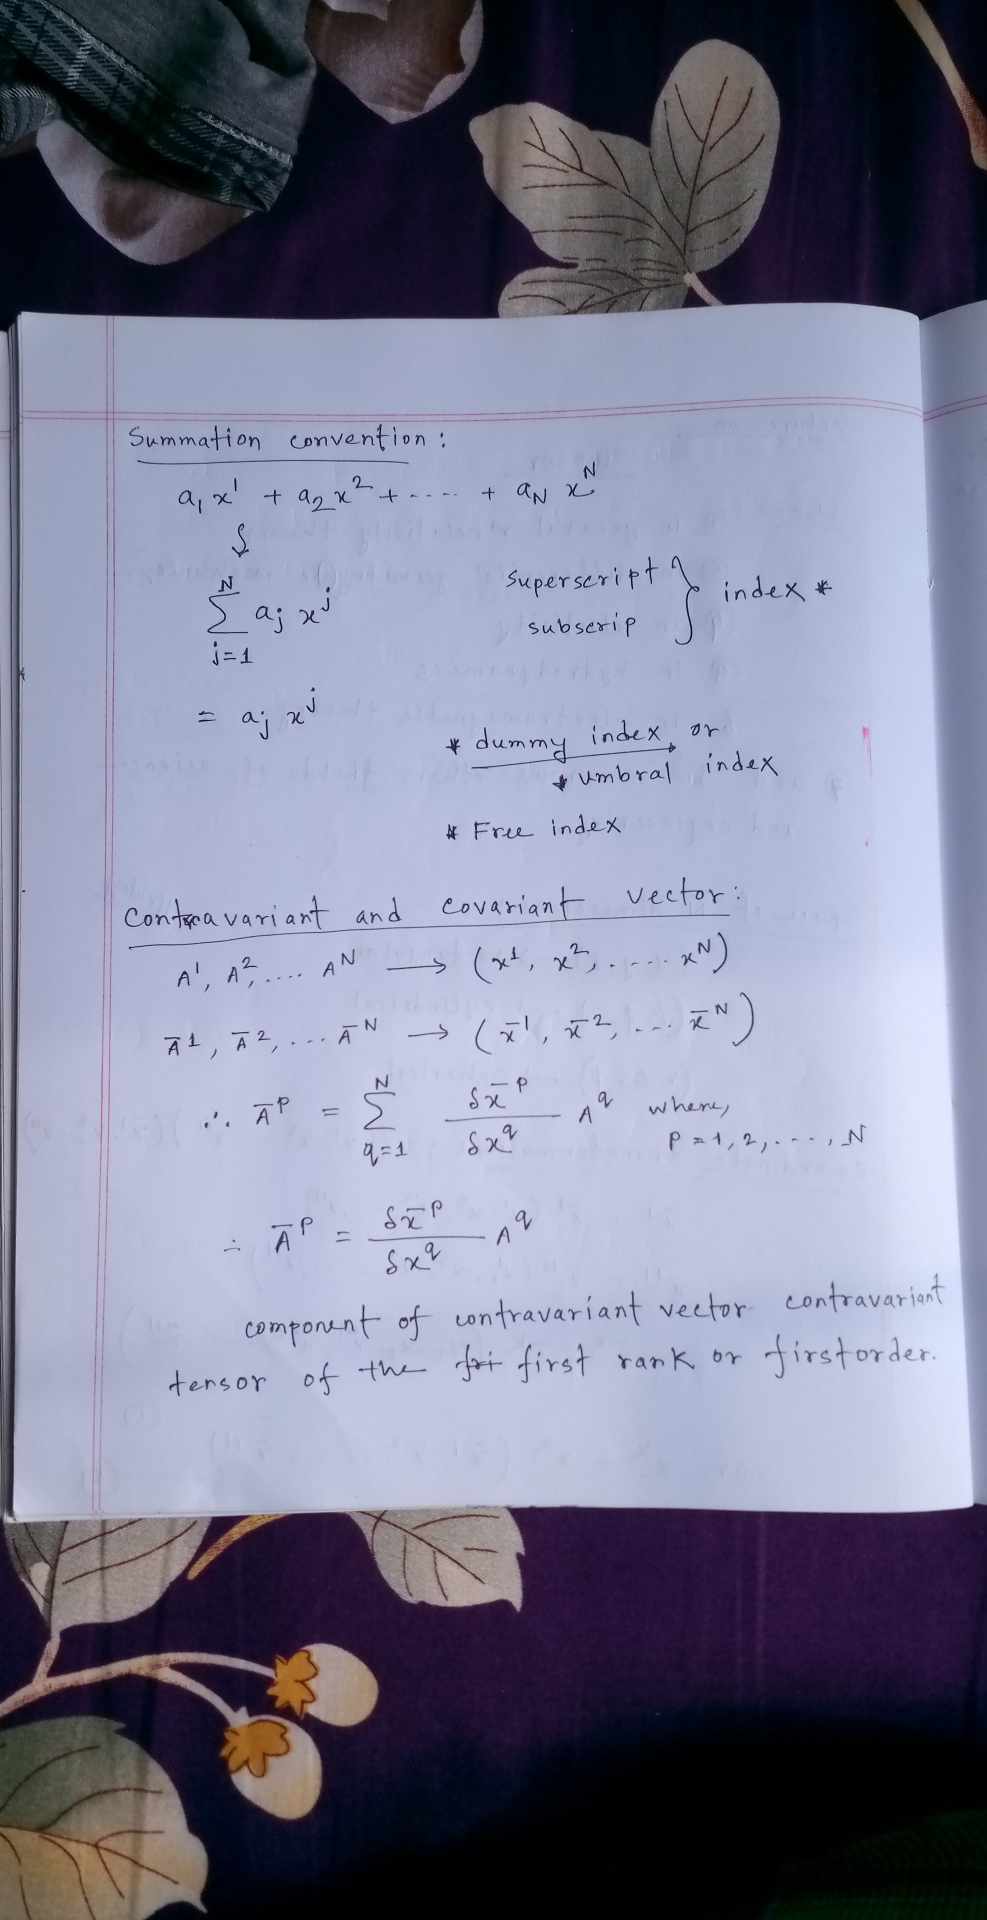 Summation convention:
a₁x¹ + a₂x² + ---- + a_N x^N
N
Σ a_j x^j
j=1
superscript } index *
subscrip
= a_j x^j
* dummy index or
* umbral index
* Free index
contravariant and covariant vector:
A¹, A², .... A^N → (x¹, x², .---. x^N)
A̅¹, A̅², ... A̅^N → (x̅¹, x̅², ... x̅^N)
∴ A̅^p = Σ_{q=1}^{N} δx̅^p / δx^q A^q where,
p = 1, 2, ----, N
∴ A̅^p = δx̅^p / δx^q A^q
component of contravariant vector contravariant
tensor of the first rank or first order.